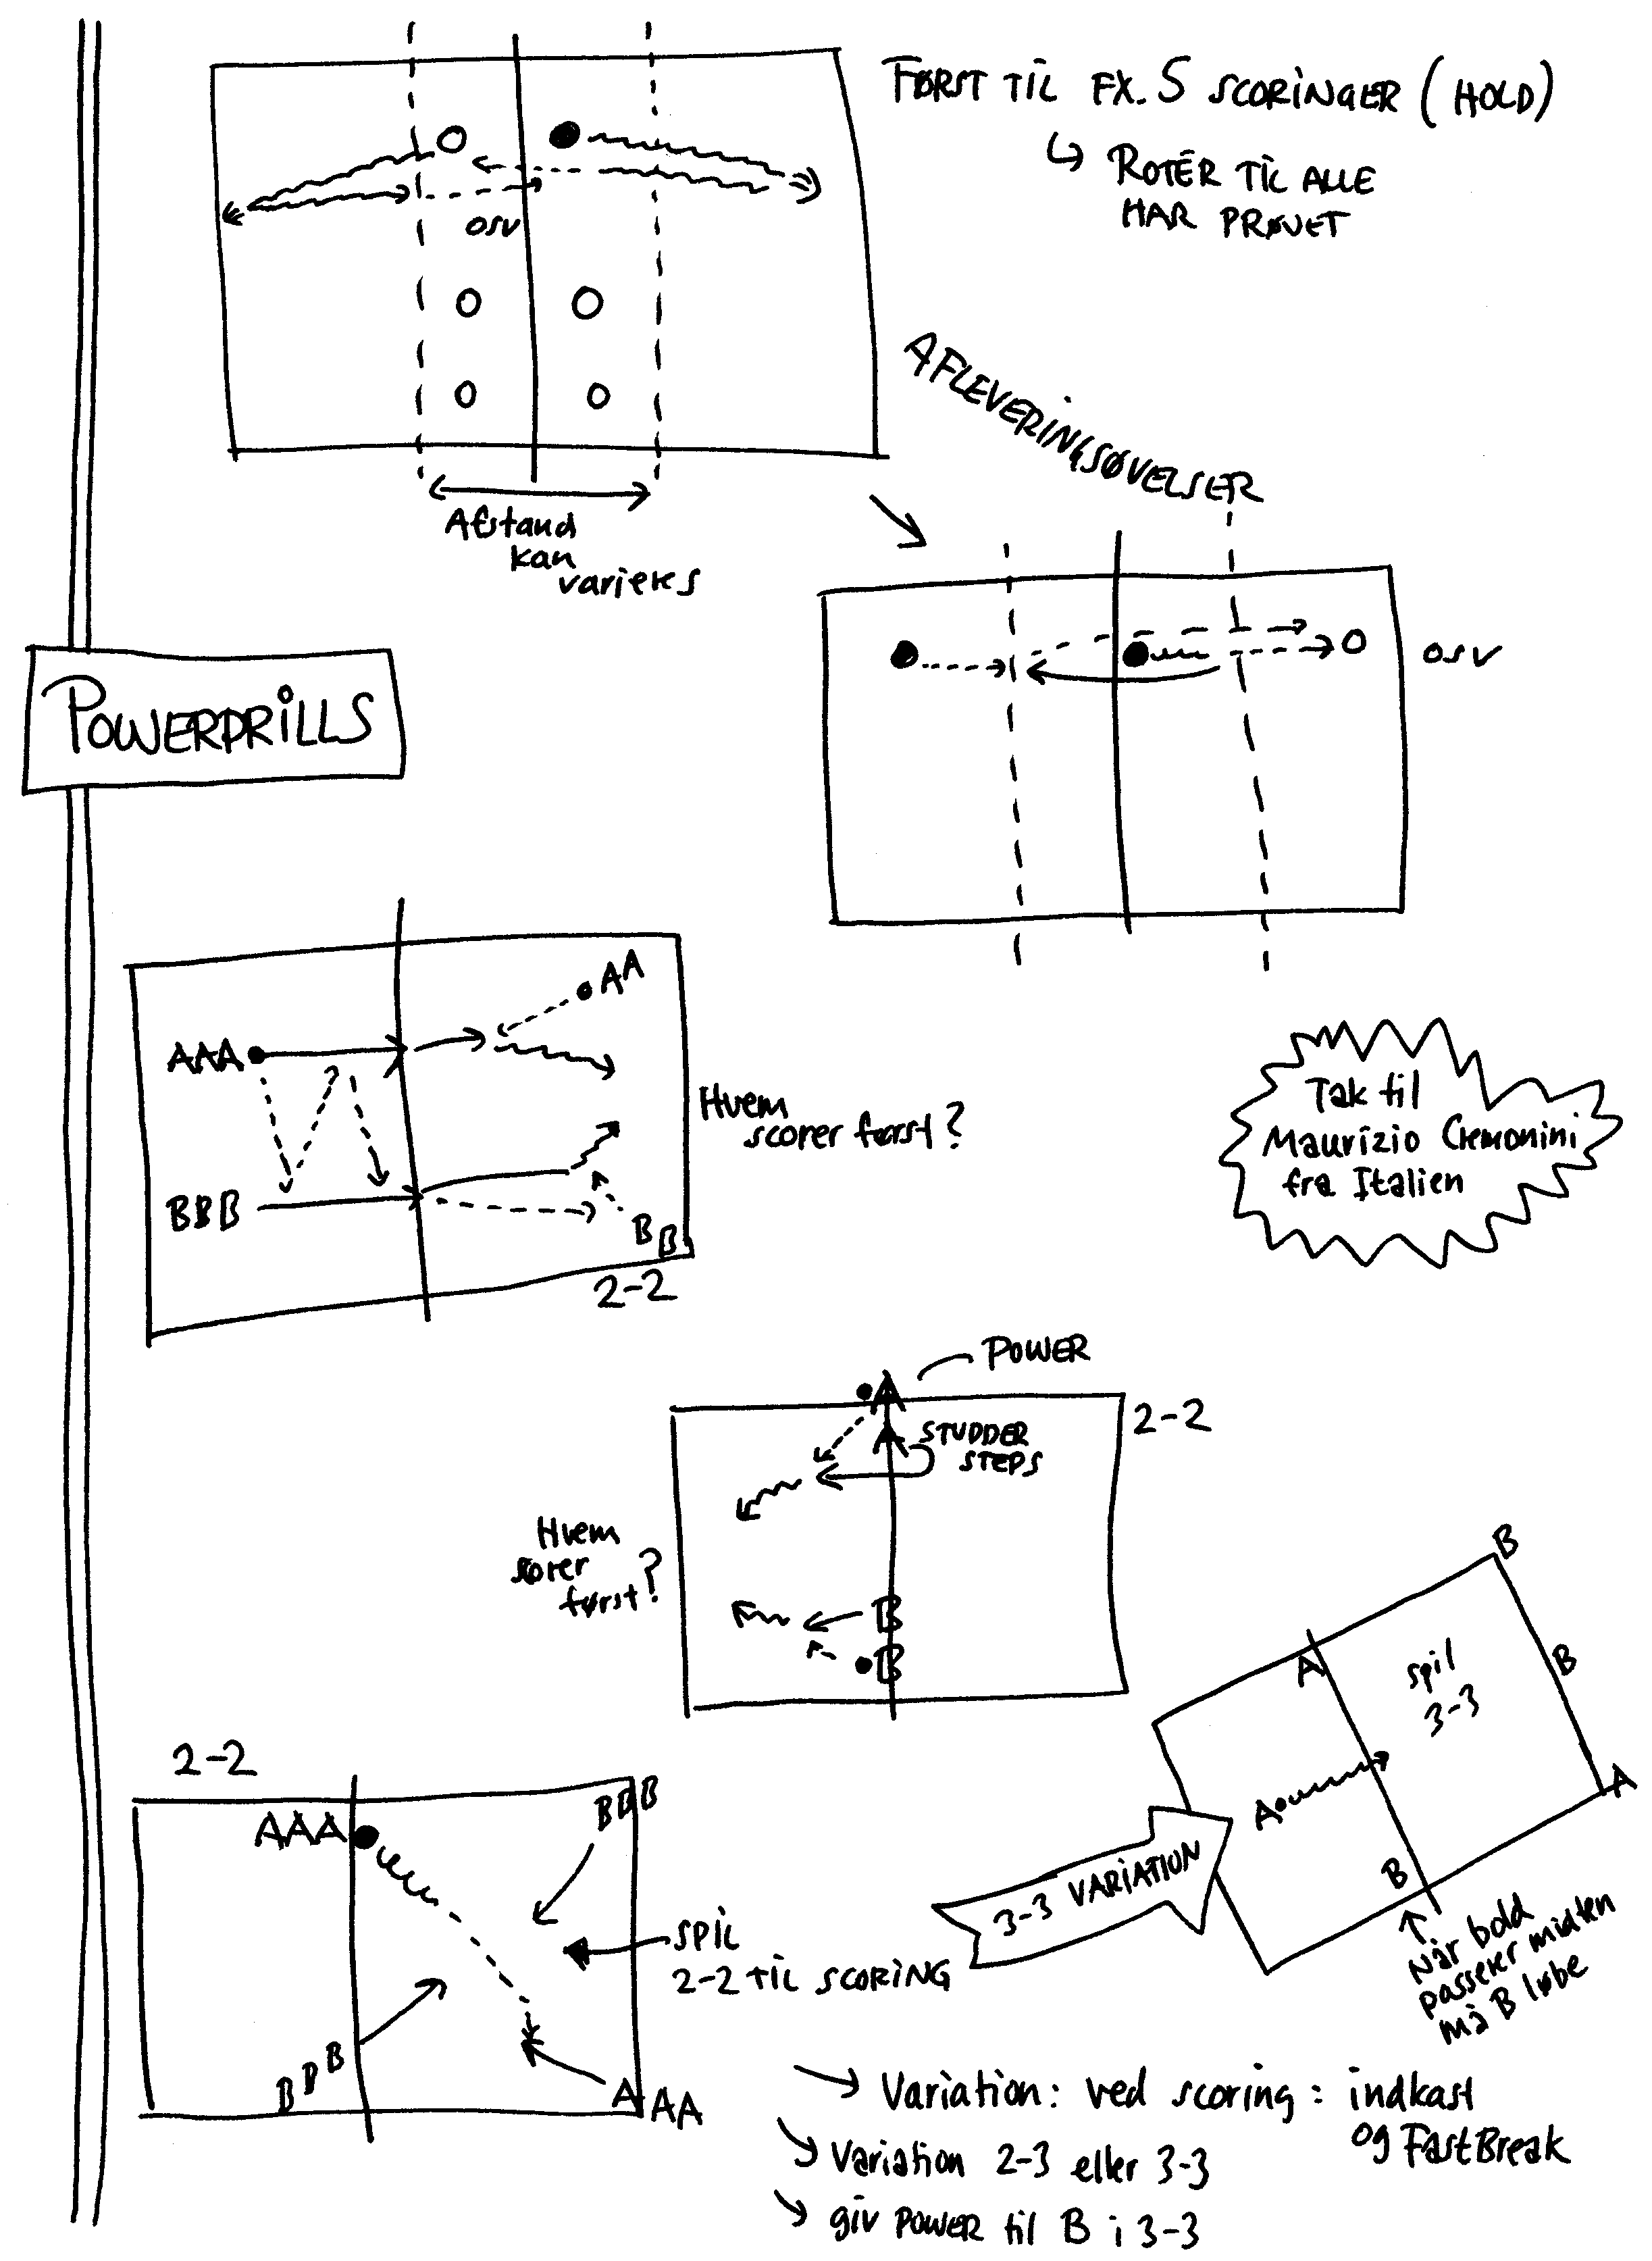 FØRST TIL FX. 5 SCORINGER (HOLD)
↳ ROTÉR TIL ALLE
HAR PRØVET
OSV
Afstand
kan
varieres
AFLEVERINGSØVELSER
OSV
POWERDRILLS
AA
AAA
BBB
BB
2-2
Hvem
scorer først?
Tak til
Maurizio Cremonini
fra Italien
POWER
A
2-2
STUDDER
STEPS
Hvem
sorer
først?
B
B
B
A
spil
3-3
B
A
A
B
3-3 VARIATION
Når bold
passerer midten
må B løbe
2-2
AAA
BBB
SPIL
2-2 TIL SCORING
BBB
AAA
Variation: ved scoring: indkast
og FastBreak
Variation 2-3 eller 3-3
giv POWER til B i 3-3